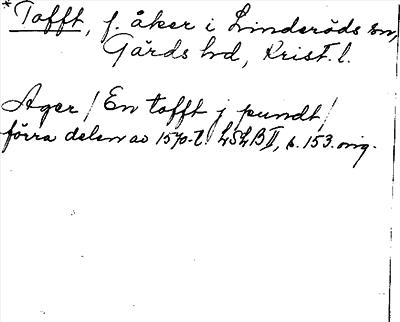 *Tofft, f. åker i Linderöds sn,
Gärds hd, Krist. l.
Ager / En tofft j pundt /
förra delen av 1570-t. LSLB II, s. 153. orig.